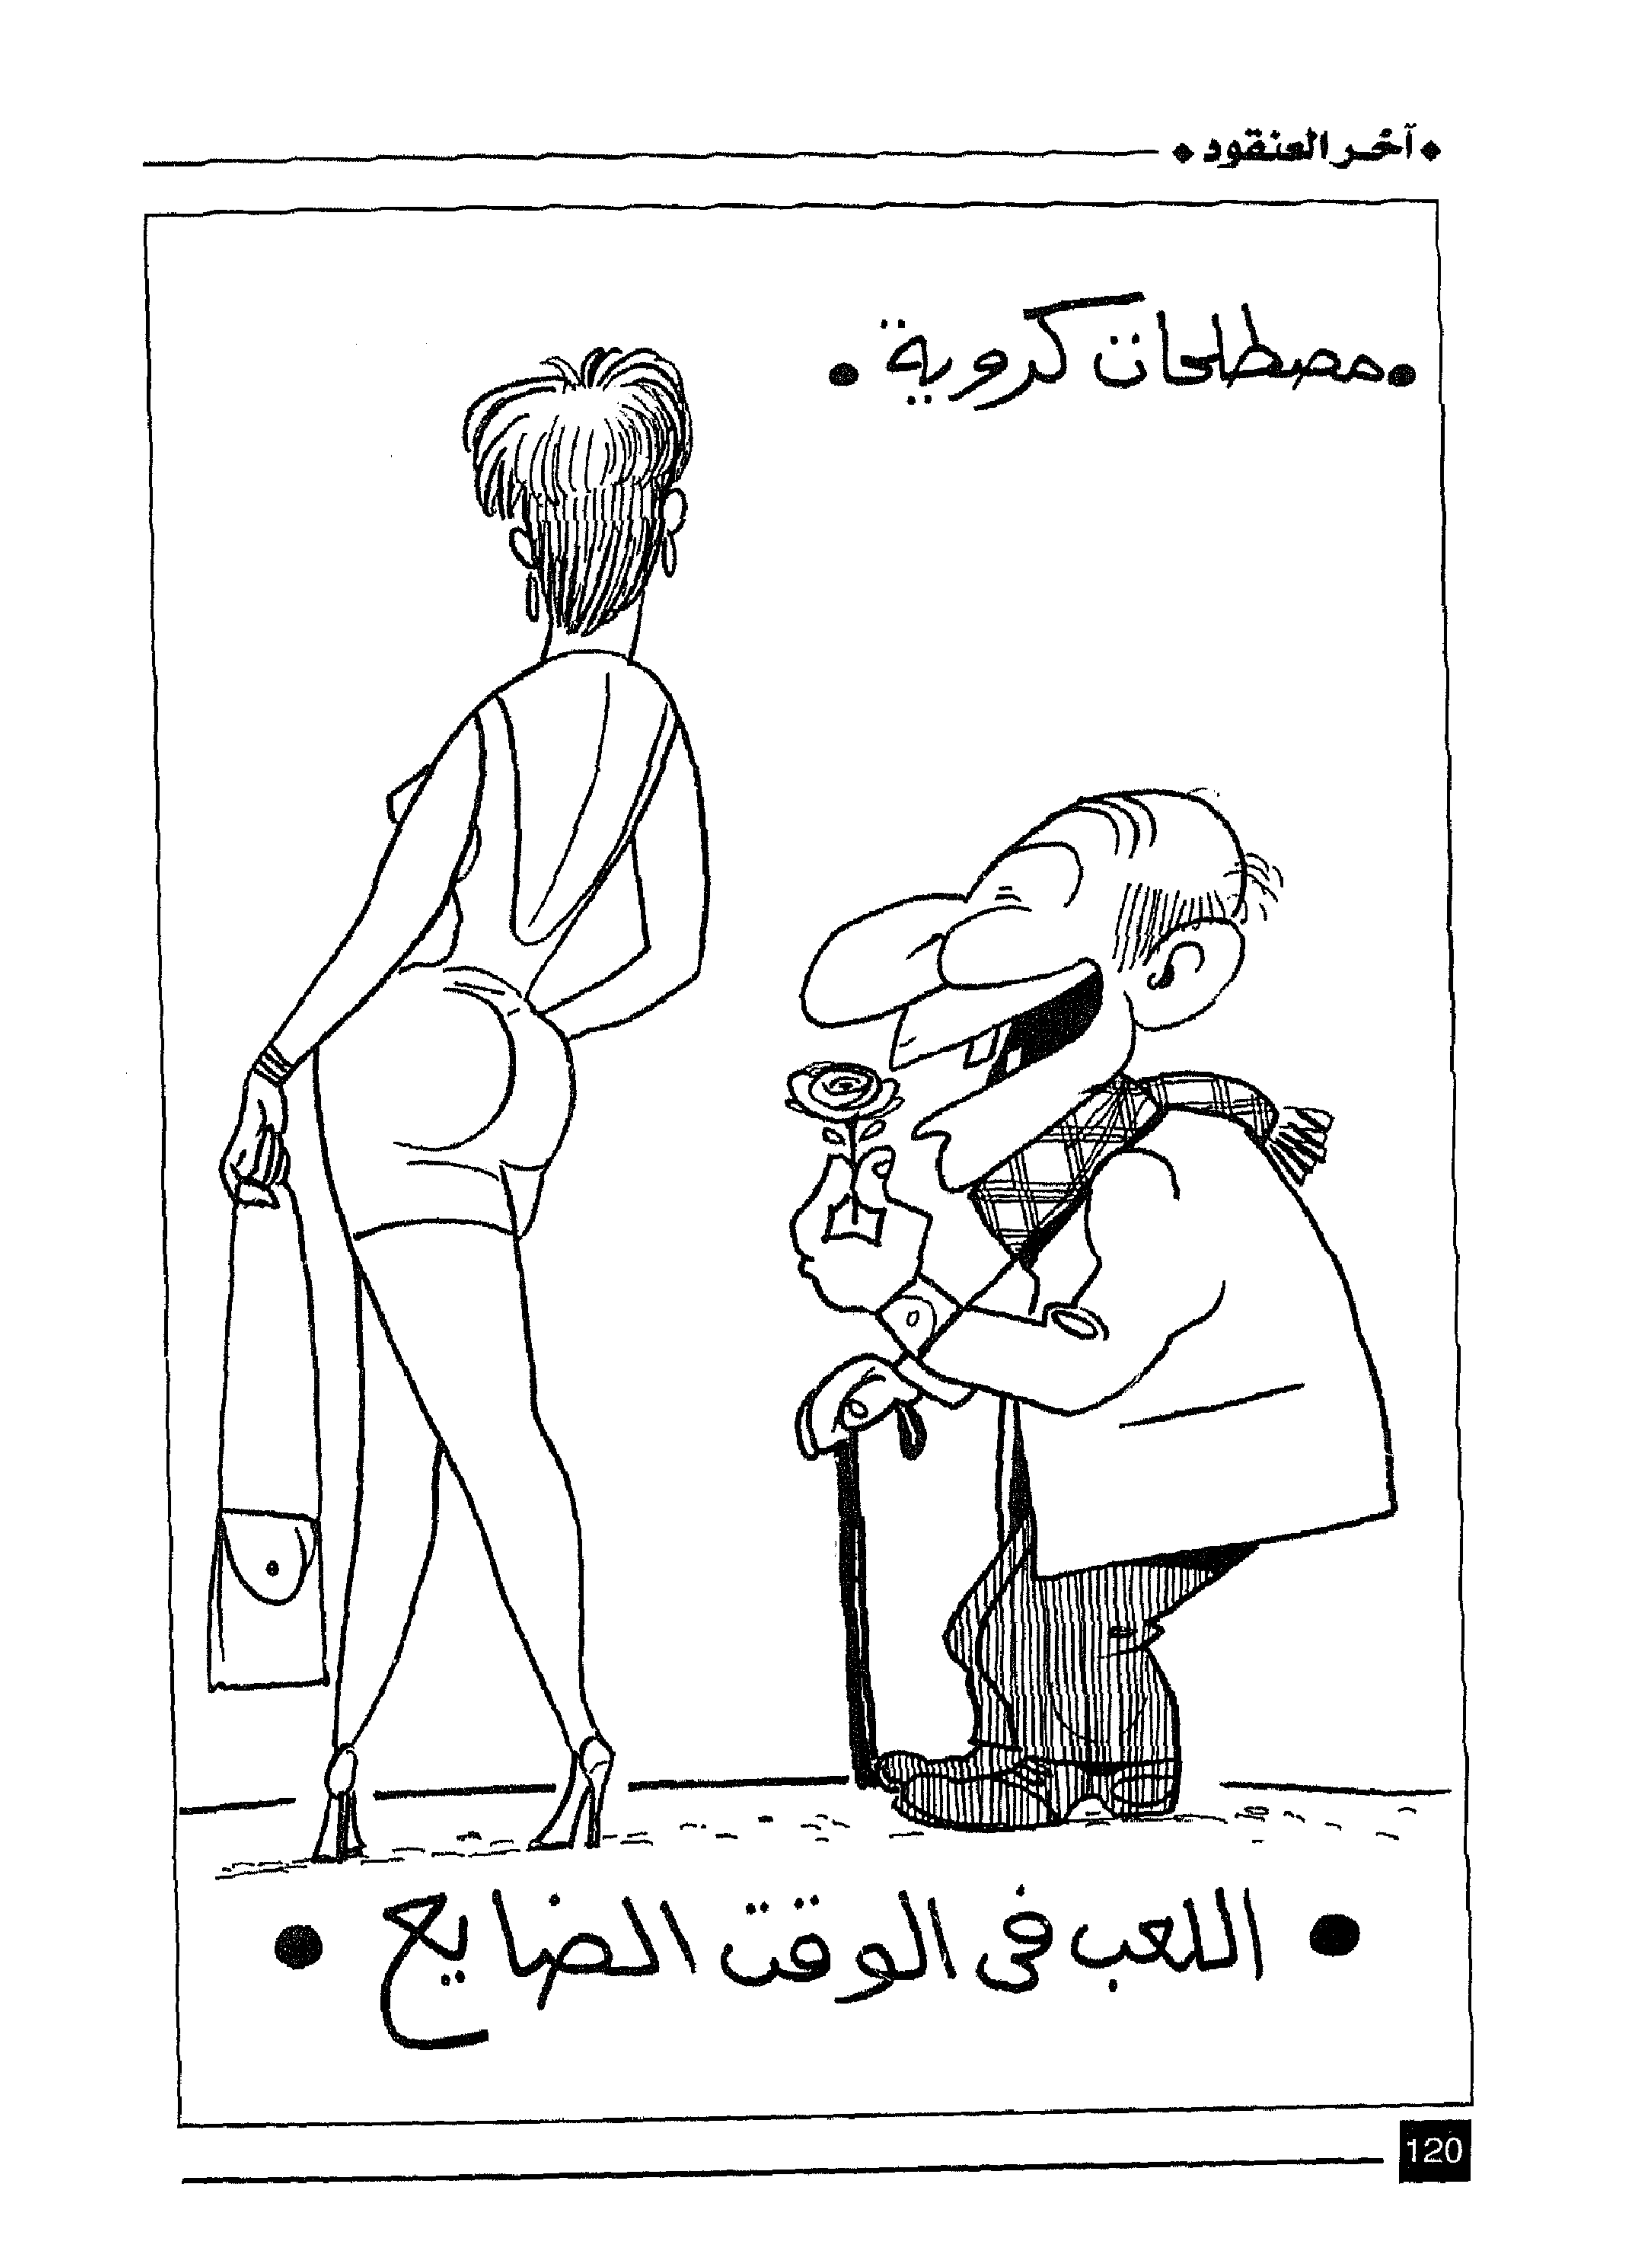 ◆ آخر العنقود ◆
• مصطلحات كروية •
• اللعب فى الوقت الضايع •
120